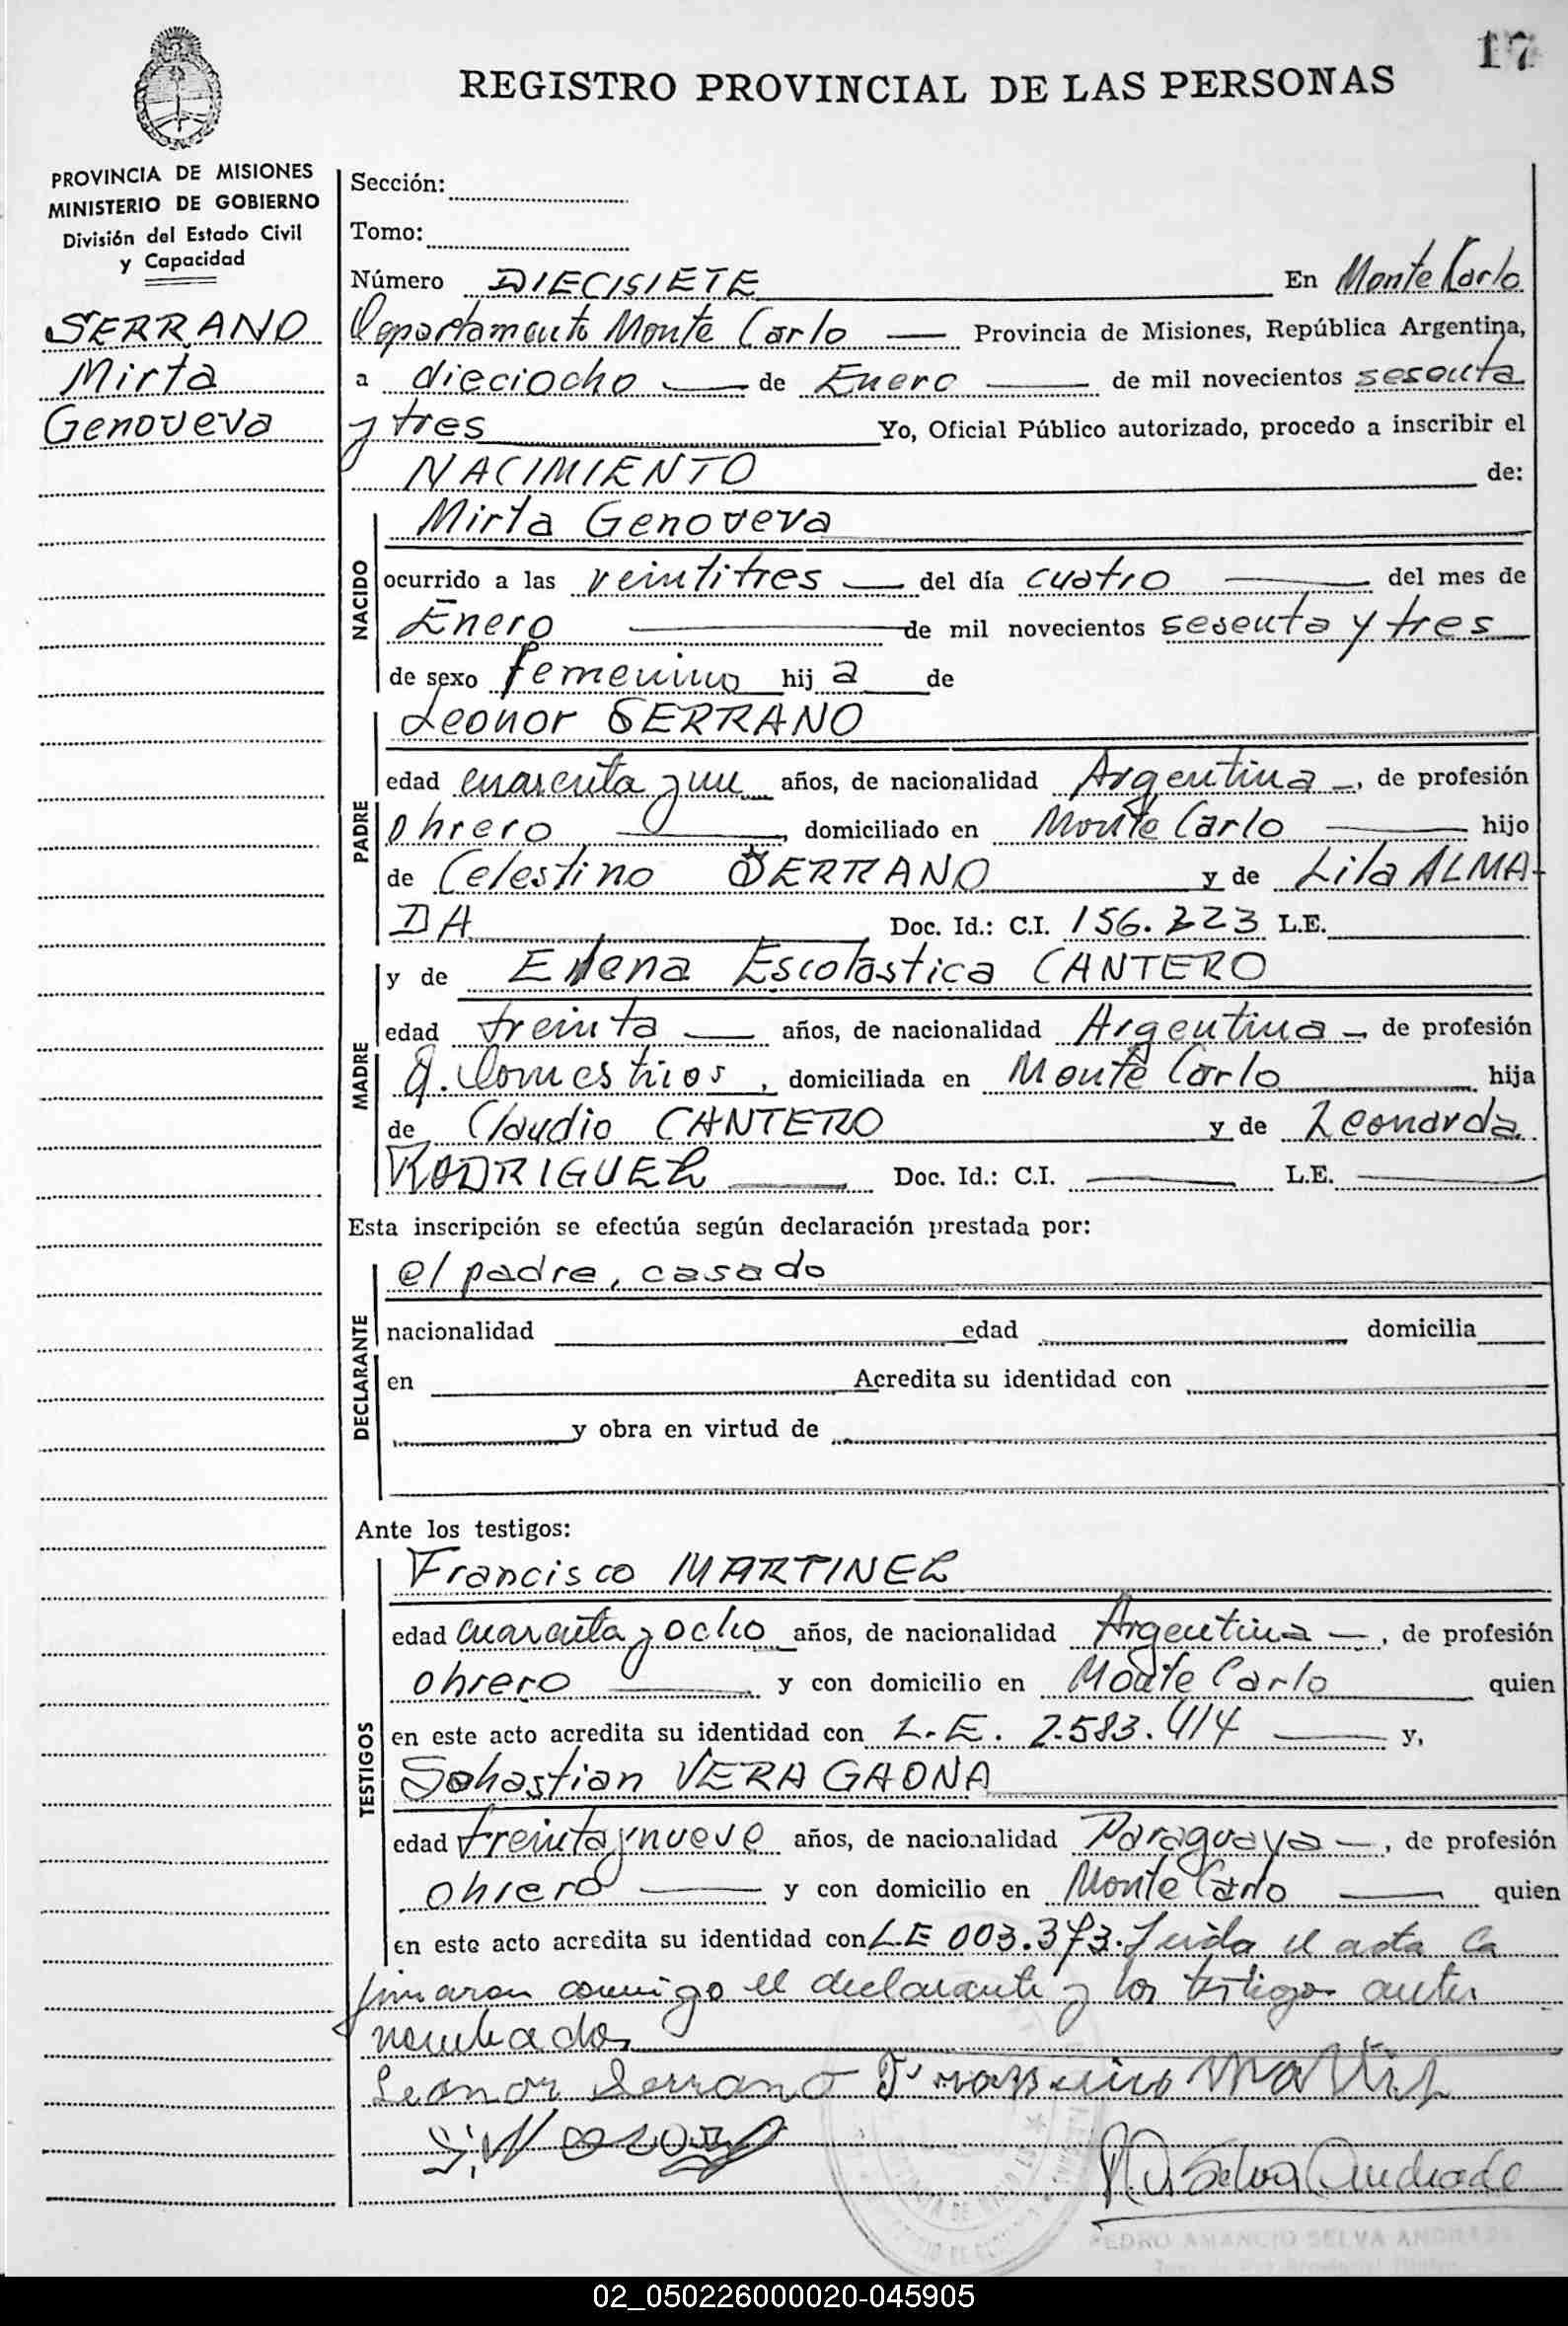 17
REGISTRO PROVINCIAL DE LAS PERSONAS
PROVINCIA DE MISIONES
MINISTERIO DE GOBIERNO
División del Estado Civil
y Capacidad
SERRANO
Mirta
Genoveva
Sección:
Tomo:
Número DIECISIETE En Monte Carlo
Departamento Monte Carlo — Provincia de Misiones, República Argentina,
a dieciocho — de Enero — de mil novecientos sesenta
y tres Yo, Oficial Público autorizado, procedo a inscribir el
NACIMIENTO de:
NACIDO
Mirta Genoveva
ocurrido a las veintitres — del día cuatro — del mes de
Enero — de mil novecientos sesenta y tres
de sexo femenino hij a de
PADRE
Leonor SERRANO
edad cuarenta y un años, de nacionalidad Argentina —, de profesión
obrero —, domiciliado en Monte Carlo — hijo
de Celestino SERRANO y de Lila ALMA-
DA Doc. Id.: C.I. 156.223 L.E.
MADRE
y de Elena Escolástica CANTERO
edad treinta — años, de nacionalidad Argentina — de profesión
q. domesticos, domiciliada en Monte Carlo hija
de Claudio CANTERO y de Leonarda
RODRIGUEZ — Doc. Id.: C.I. — L.E. —
Esta inscripción se efectúa según declaración prestada por:
DECLARANTE
el padre, casado
nacionalidad edad domicilia
en Acredita su identidad con
y obra en virtud de
Ante los testigos:
TESTIGOS
Francisco MARTINEZ
edad cuarenta y ocho años, de nacionalidad Argentina —, de profesión
obrero — y con domicilio en Monte Carlo quien
en este acto acredita su identidad con L.E. 2.583.414 — y,
Sebastian VERA GAONA
edad treinta y nueve años, de nacionalidad Paraguaya —, de profesión
obrero — y con domicilio en Monte Carlo — quien
en este acto acredita su identidad con L.E 003.373. Leida el acta la
firmaron conmigo el declarante y los testigos antes
nombrados
Leonor Serrano Francisco Martinez
P. A. Selva Andrade
PEDRO AMANCIO SELVA ANDRADE
02_050226000020-045905